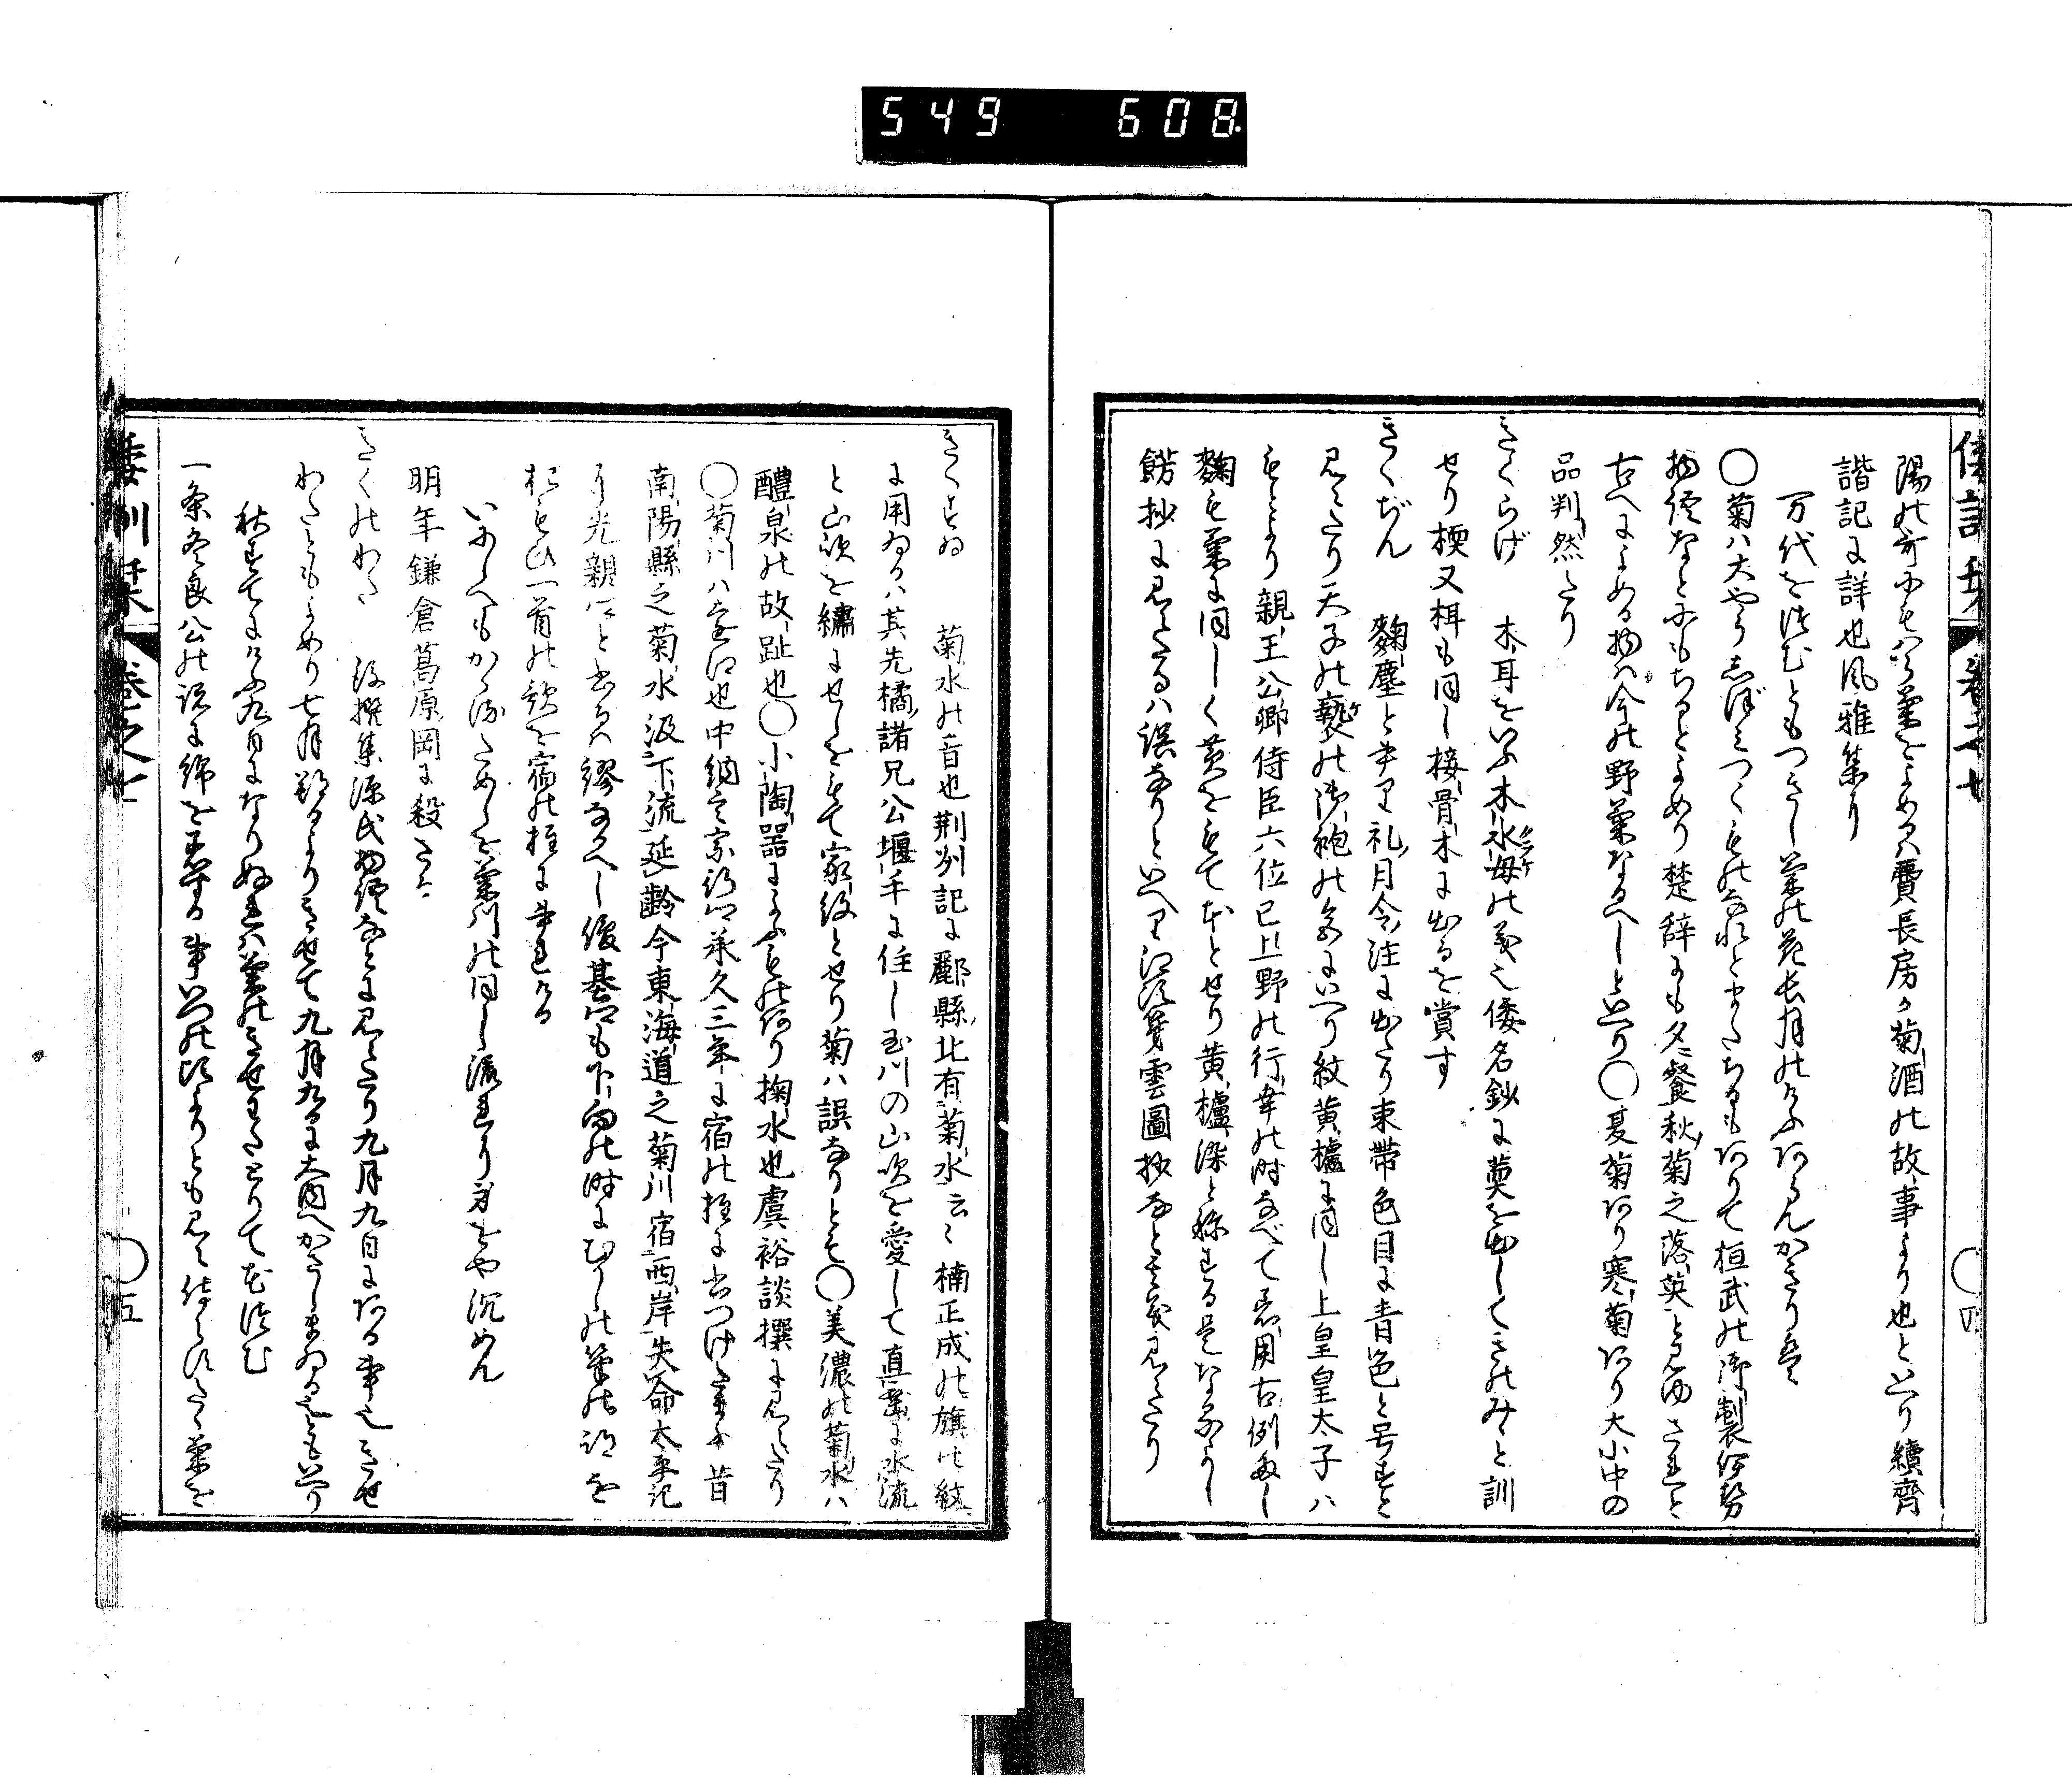 549 608
倭訓栞 巻之七 ○四
陽の哥にもハら菊をよめるハ費長房か菊酒の故事より也といへり續齊
諧記に詳也風雅集に
万代をつむともつきし菊の花長月のけふあらんかきりは
○菊ハ大やうしぼみつくものなれとまたちるもありて桓武の御製伊勢
物語なとにもちるとよめり楚辞にも夕餐秋菊之落英と見ゆされと
古へによめる物ハ今の野菊なるへしといへり○夏菊あり寒菊あり大小中の
品判然たり
きくらげ 木耳をいふ木水母の義也倭名鈔に䓴を出してきのみゝと訓
せり檽又栮も同し接骨木に出るを賞す
きくぢん 麴塵と書り礼月令注に出たり束帯色目に青色と号すと
見えたり天子の褻の御袍の色にいへり紋黄櫨に同し上皇皇太子ハ
もとより親王公卿侍臣六位已上野の行幸の時なべて着用古例多し
麴も菊に同しく黄をもて本とせり黄櫨染と称する是なるよし
餝抄に見えたるハ誤なりといへり江次第雲圖抄なと考へ見えたり
きくすゐ 菊水の音也荆州記に酈縣北有菊水云々楠正成の旗の紋
に用ゐるハ其先橘諸兄公堰手に住し玉川の山吹を愛して真筆に水流
と山吹を繡にせしをもて家紋とせり菊ハ誤なりとそ○美濃の菊水ハ
醴泉の故趾也○小陶器にいふものあり掬水也虞裕談撰に見えたり
○菊川ハ遠江也中納言宗行卿承久三年に宿の柱に書つけたまふ昔
南陽縣之菊水汲下流延齢今東海道之菊川宿西岸失命太平記
に光親卿と書るハ繆なるへし後基卿も下向の時にむかしの筆の跡を
おもひ一首の歌を宿の柱に書れける
いにしへもかゝるためしを菊川の同し流れに身をや沈めん
明年鎌倉葛原岡に殺さる
きくのわた 後撰集源氏物語なとに見えたり九月九日にある事也きせ
わたともよめり七月朔日よりきせて九月九日に大内へかさしまゐるともいへり
秋すてにけふ九日になりぬれハ菊のきせわたとりてむつむ
一条冬良公の説に綿を着する事いつの比よりとも見え侍らすたゝ菊を
倭訓栞 巻之七 ○五